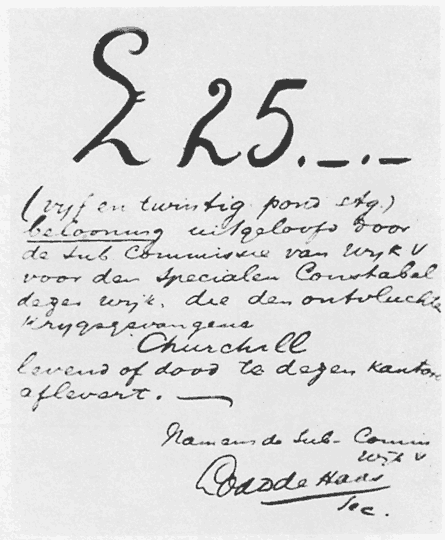 £ 25.—.—
(vijf en twintig pond stg.)
belooning uitgeloofd door
de Sub Commissie van Wijk V
voor den specialen Constabel
dezer wijk, die den ontvluchte
krijgsgevangene
Churchill
levend of dood te dezen kantore
aflevert.—
Namens de Sub-Comm
Wijk V
Lodk de Haas
Sec.